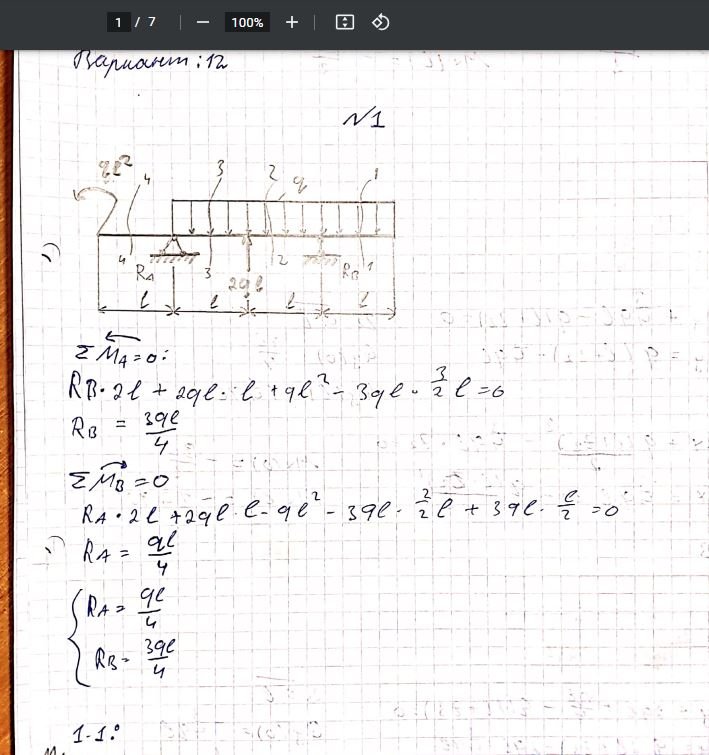 1 / 7 100%
Вариант: 12
N1
ql² 4 3 2 q 1
1)
4 RA 3 2ql 2 RB 1
l l l l
ΣMA=0:
RB·2l + 2ql·l + ql² - 3ql·3/2 l = 0
RB = 3ql/4
ΣMB=0
RA·2l + 2ql·l - ql² - 3ql·2/2 l + 3ql·l/2 = 0
RA = ql/4
{RA = ql/4
RB = 3ql/4
1-1: